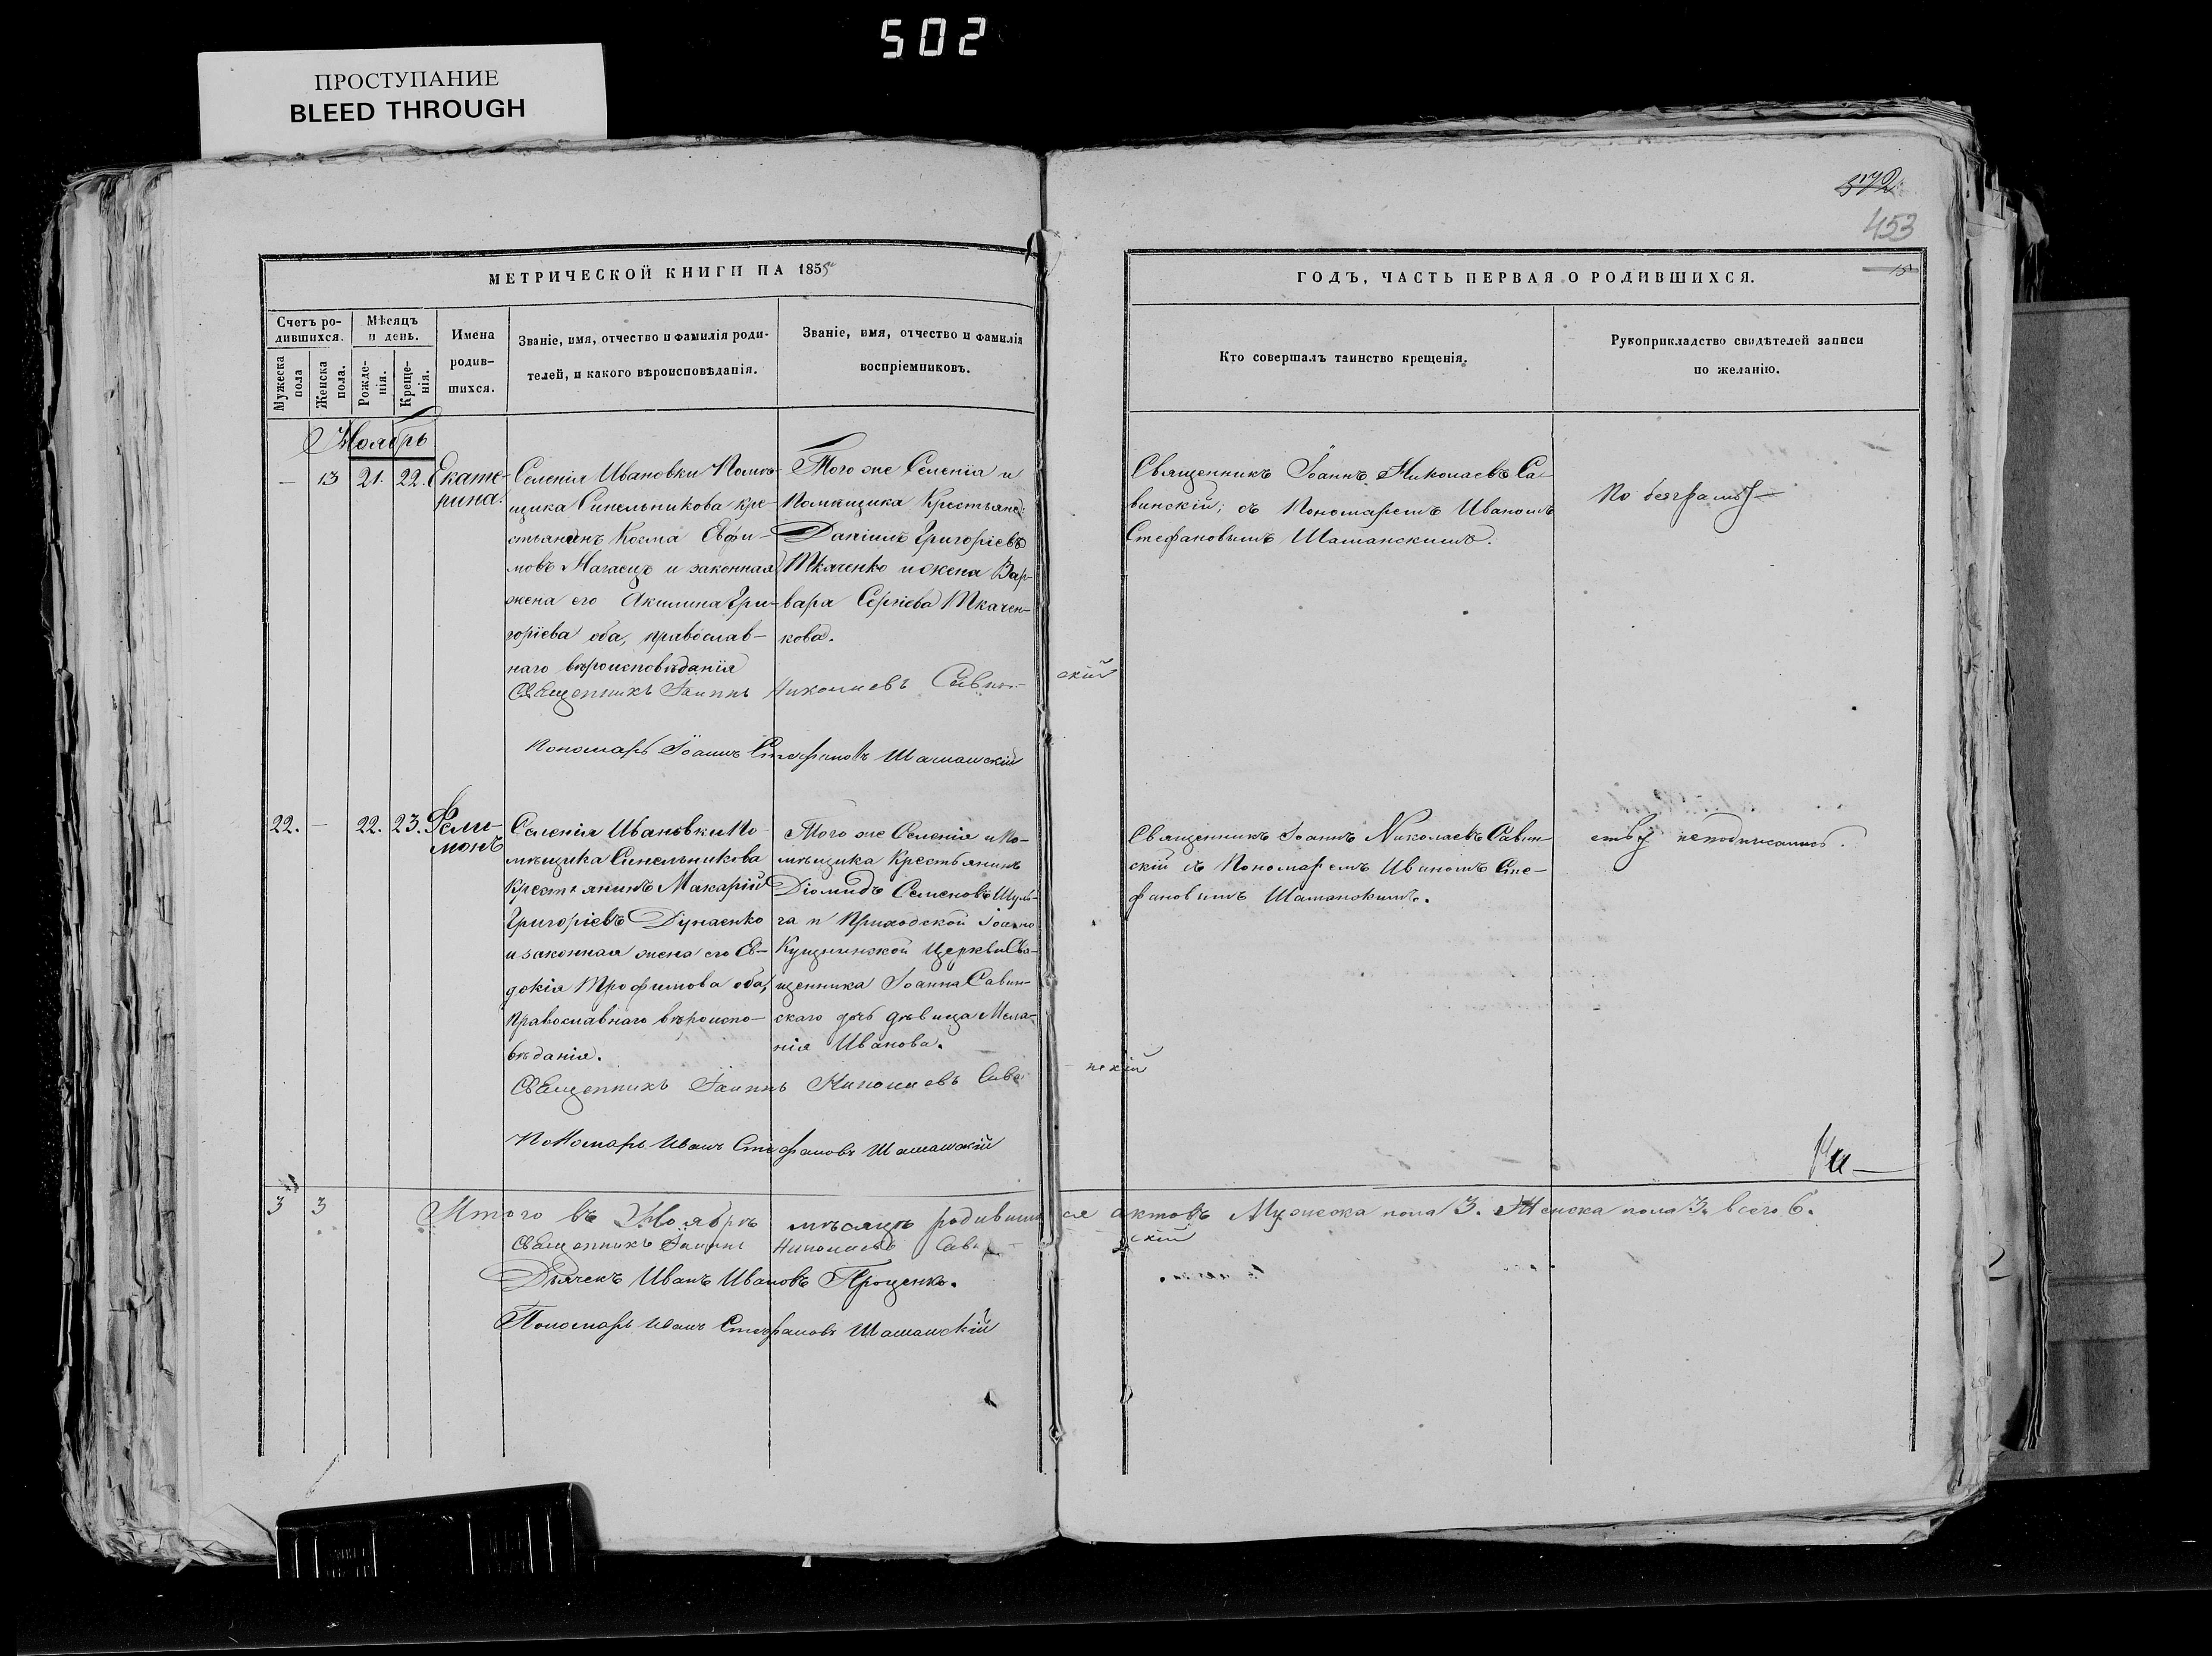 502
ПРОСТУПАНИЕ
BLEED THROUGH
572
453
МЕТРИЧЕСКОЙ КНИГИ НА 1855
ГОДЪ, ЧАСТЬ ПЕРВАЯ О РОДИВШИХСЯ.
Счетъ ро-
дившихся.
Мужеска пола
Женска пола.
Мѣсяцъ
и день.
Рожде-
нія.
Креще-
нія.
Имена
родив-
шихся.
Званіе, имя, отчество и фамилія роди-
телей, и какого вѣроисповѣданія.
Званіе, имя, отчество и фамилія
воспріемниковъ.
Кто совершалъ таинство крещенія.
Рукоприкладство свидѣтелей записи
по желанію.
Ноябрь
— 13 21. 22. Екате-
рина.
Селенія Ивановки Помѣ-
щика Синельникова кре-
стьянинъ Косма Евфи-
мовъ и законная
жена его Акилина Гри-
горіева оба, православ-
наго вѣроисповѣданія
Того же Селенія и
Помѣщика Крестьянѣ:
Даніилъ Григоріевъ
Ткаченко и жена Вар-
вара Сергіева Ткачен-
кова.
Священникъ Іоаннъ Николаевъ Савинскій
Пономарь Іоаннъ Стефановъ Шаманскій
Священникъ Іоаннъ Николаевъ Са-
винскій; съ Пономаремъ Иваномъ
Стефановымъ Шаманскимъ.
По безграмот-
22. — 22. 23. Фили-
монъ
Селенія Ивановки По-
мѣщика Синельникова
Крестьянинъ Макарій
Григоріевъ Дунаенко
и законная жена его Ев-
докія Трофимова оба,
Православнаго вѣроиспо-
вѣданія.
Того же Селенія и По-
мѣщика Крестьянинъ
Діомидъ Семеновъ Шуль-
га и Приходской Іоанно
Церкви Свя-
щенника Іоанна Савин-
скаго дочь дѣвица Мела-
нія Иванова.
Священникъ Іоаннъ Николаевъ Савинскій
Пономарь Иванъ Стефановъ Шаманскій
Священникъ Іоаннъ Николаевъ Савин-
скій съ Пономаремъ Иваномъ Сте-
фановымъ Шаманскимъ.
ству неподписались.
3 3 Итого въ Ноябрѣ мѣсяцѣ родившихся актовъ Мужеска пола 3. Женска пола 3. всего 6.
Священникъ Іоаннъ Николаевъ Савинскій
Дьячекъ Иванъ Ивановъ Проценко.
Пономарь Иванъ Стефановъ Шаманскій